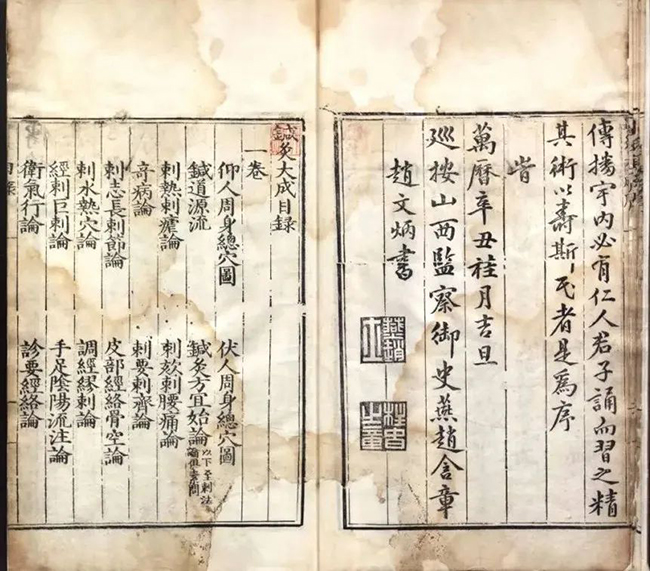 傳播宇內必有仁人君子誦而習之精
其術以壽斯民者是爲序
旹
萬曆辛丑桂月吉旦
巡按山西監察御史燕趙含章
趙文炳書
鍼灸大成目錄
一卷
仰人周身總穴圖 伏人周身總穴圖
鍼道源流 鍼灸方宜始論 以下至刺法論俱素問
刺熱刺瘧論 刺欬刺腰痛論
奇病論 刺要刺齊論
刺志長刺節論 皮部經絡骨空論
刺水熱穴論 調經繆刺論
經刺巨刺論 手足陰陽流注論
衛氣行論 診要經絡論